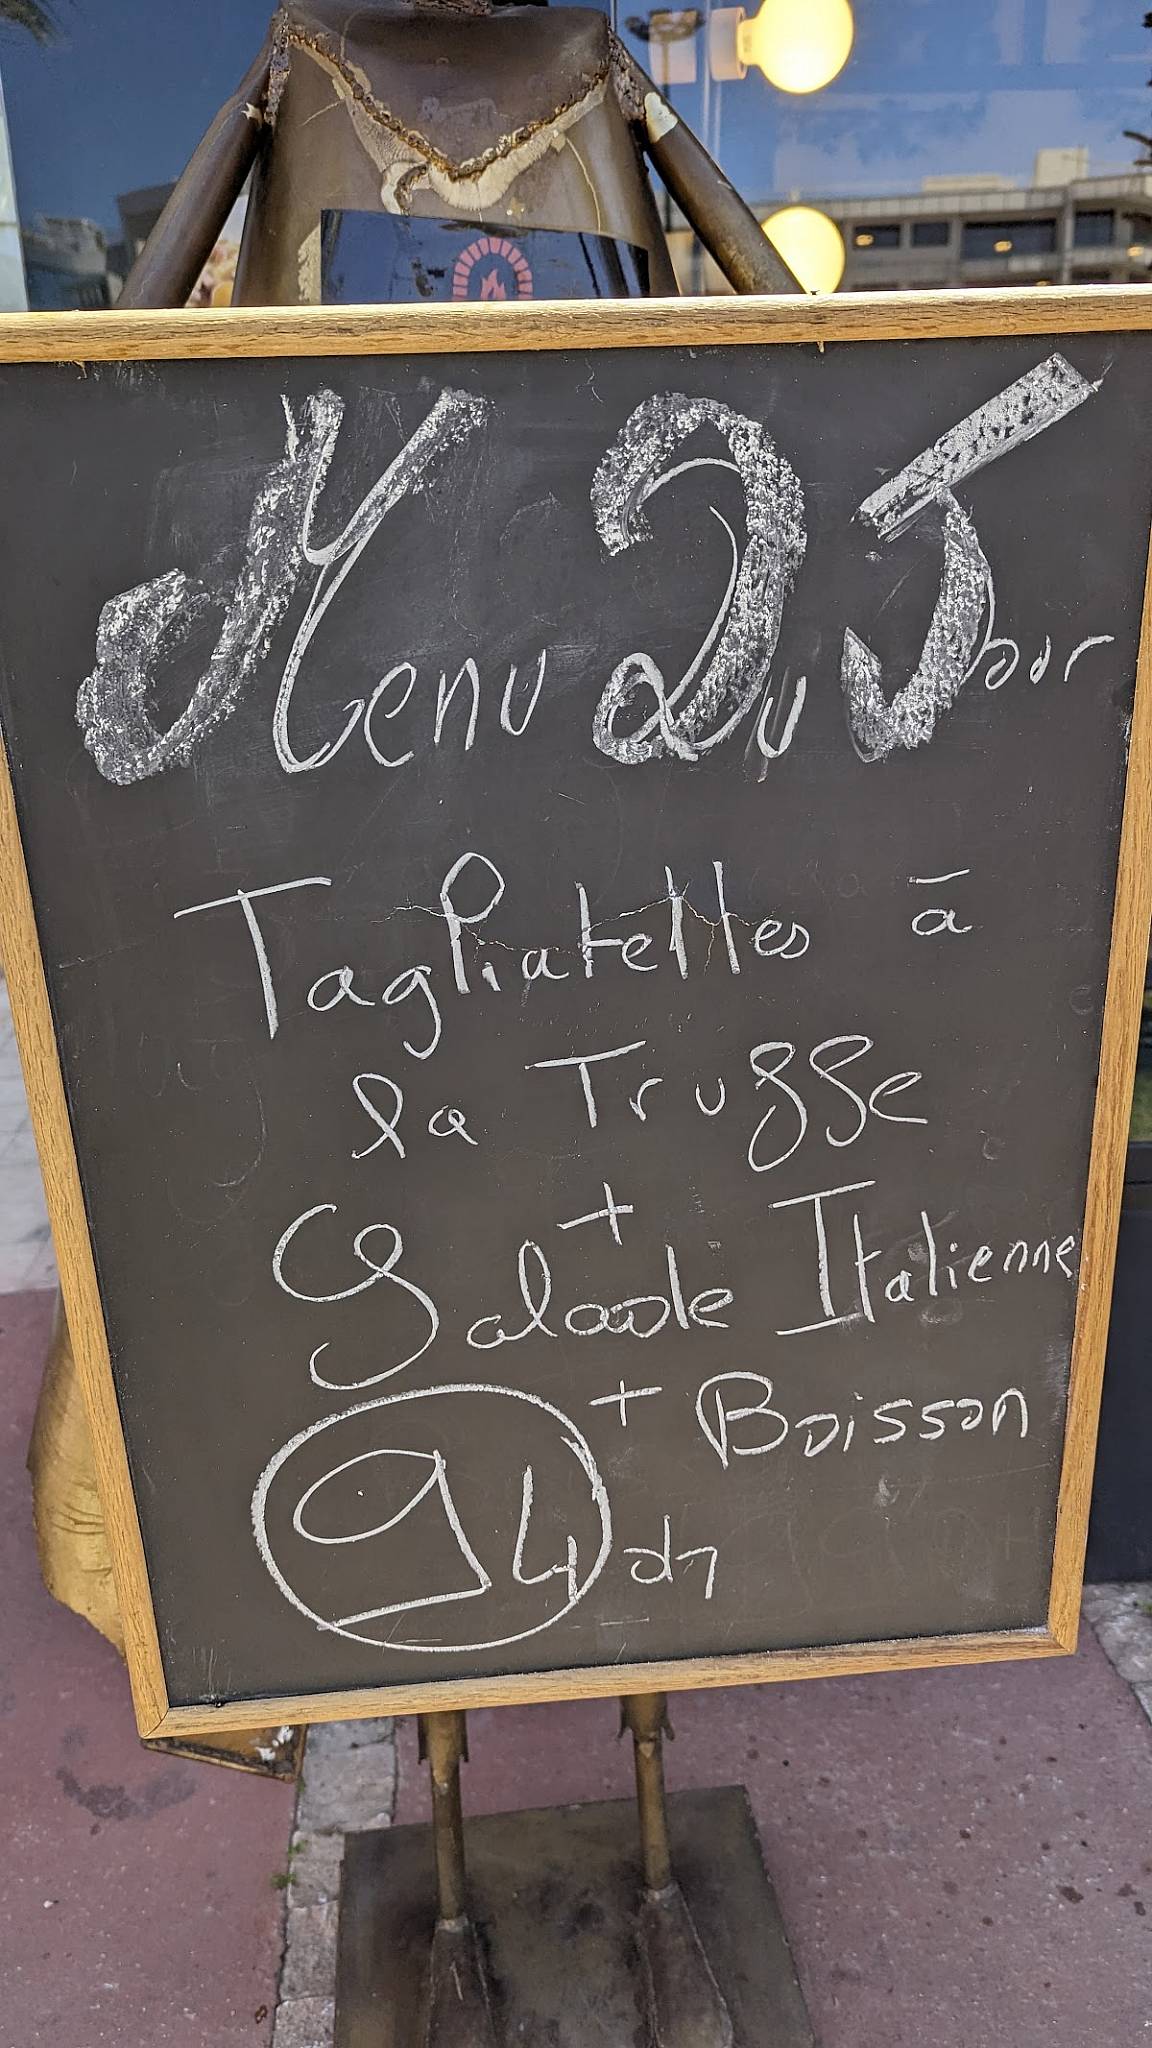 Menu Du Jour
Tagliatelles à
la Truffe
+
Salade Italienne
+ Boisson
94 dh